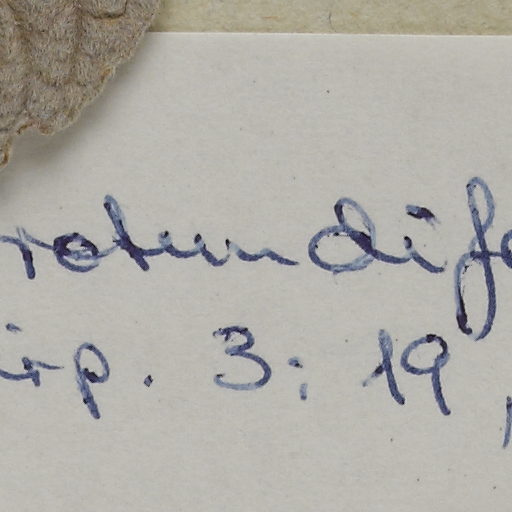 rotundifo
irp. 3: 19,